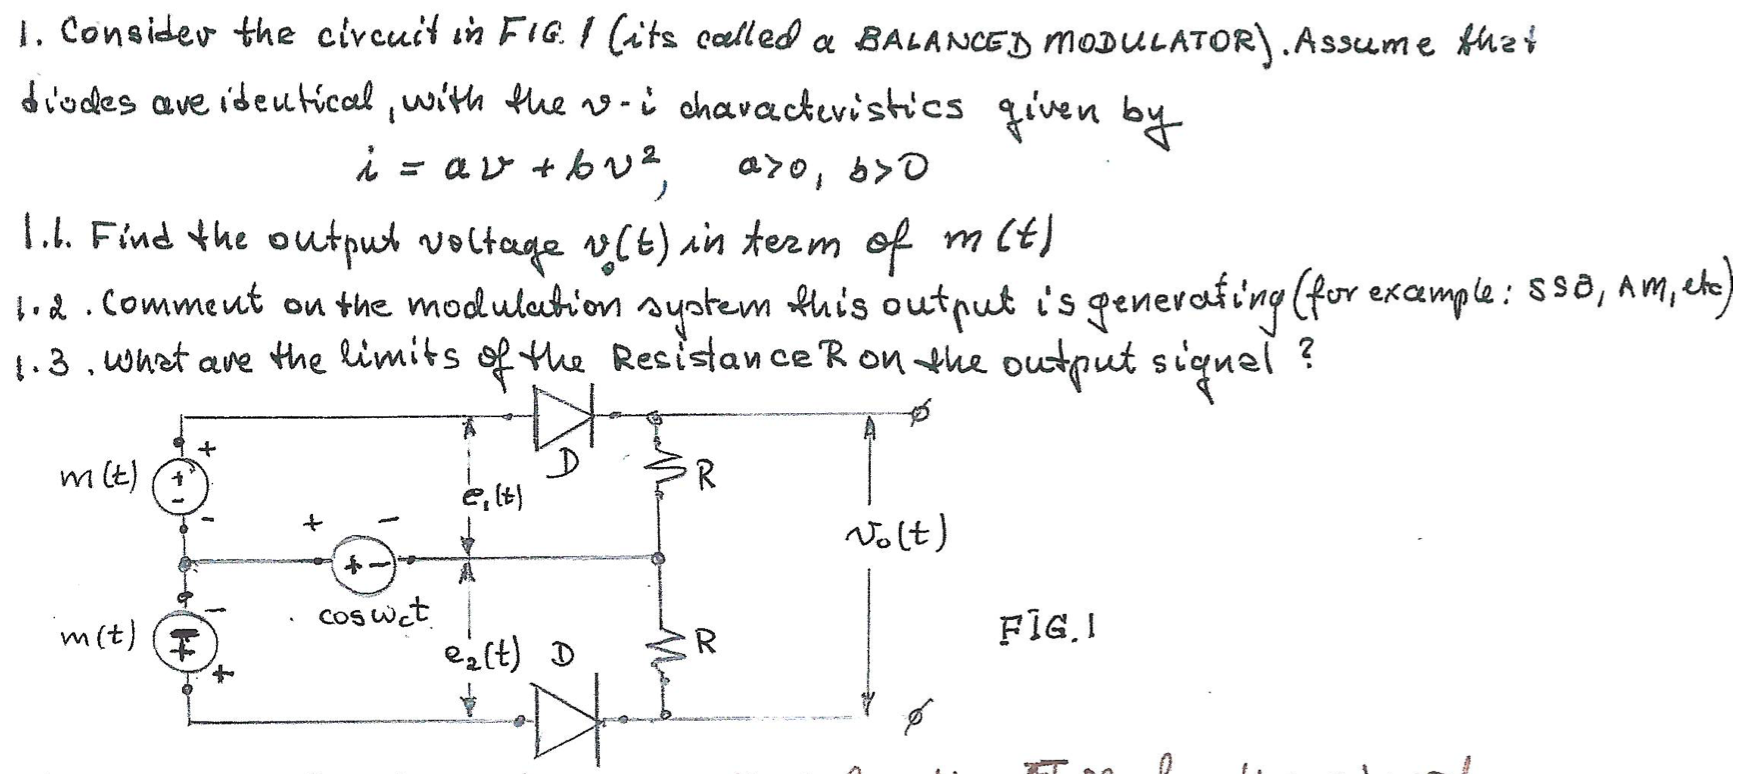 1. Consider the circuit in FIG. 1 (its called a BALANCED MODULATOR). Assume that
diodes are identical, with the v-i characteristics given by
i = av + bv², a>0, b>0
1.1. Find the output voltage v₀(t) in term of m(t)
1.2. Comment on the modulation system this output is generating (for example: SSB, AM, etc)
1.3. What are the limits of the Resistance R on the output signal?
D
+
m(t)
+
-
R
e₁(t)
-
+ -
v₀(t)
+ -
cos ωct
-
FIG. 1
m(t)
-
+
e₂(t) D
R
+